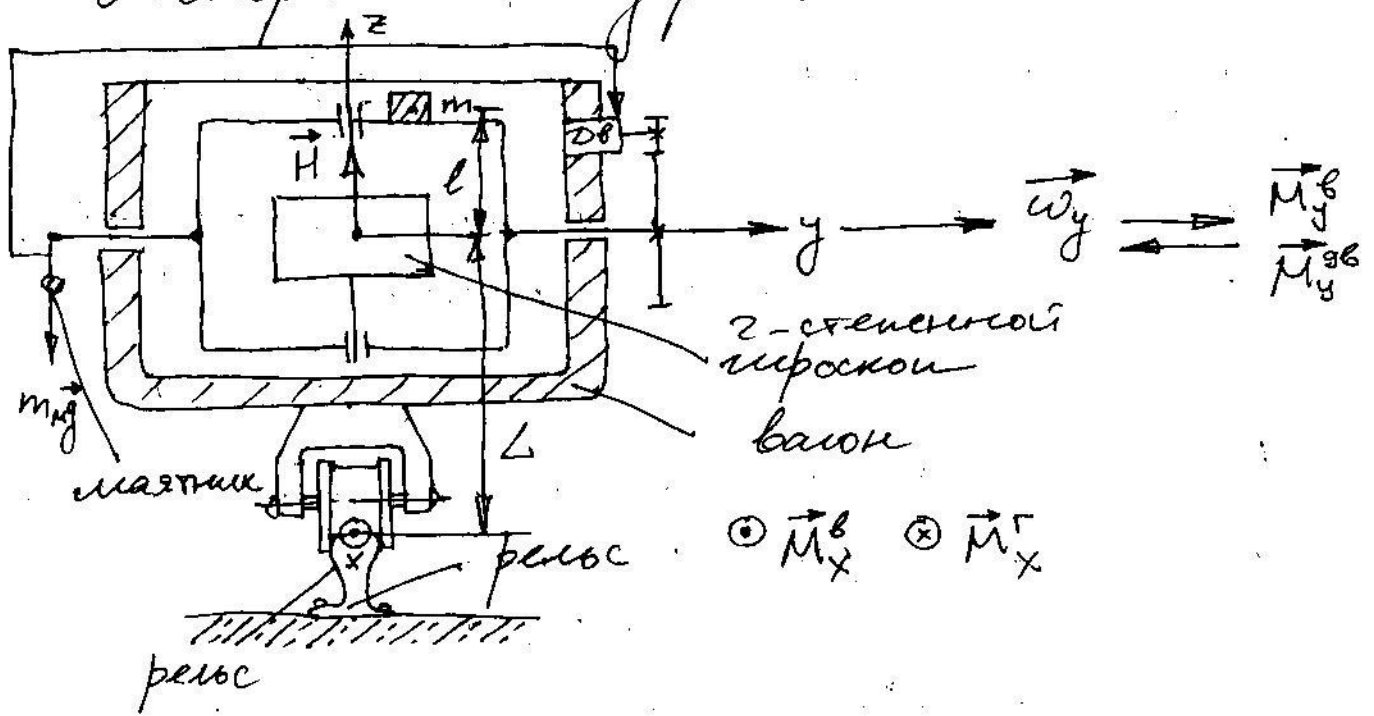 z
m
Дв
H
l
y
ω_y
M_y^в
M_y^дв
2-степенной
гироскоп
mмg
вагон
L
маятник
x
рельс
M_x^в
M_x^г
рельс